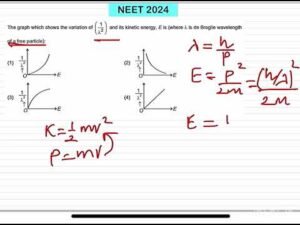 NEET 2024
The graph which shows the variation of (1/λ²) and its kinetic energy, E is (where λ is de Broglie wavelength
of a free particle):
(1) 1/λ² O E
(2) 1/λ² O E
(3) 1/λ² O E
(4) 1/λ² O E
λ = h/p
E = p²/2m = (h/λ)²/2m
K = 1/2 mv²
p = mv
E = 1